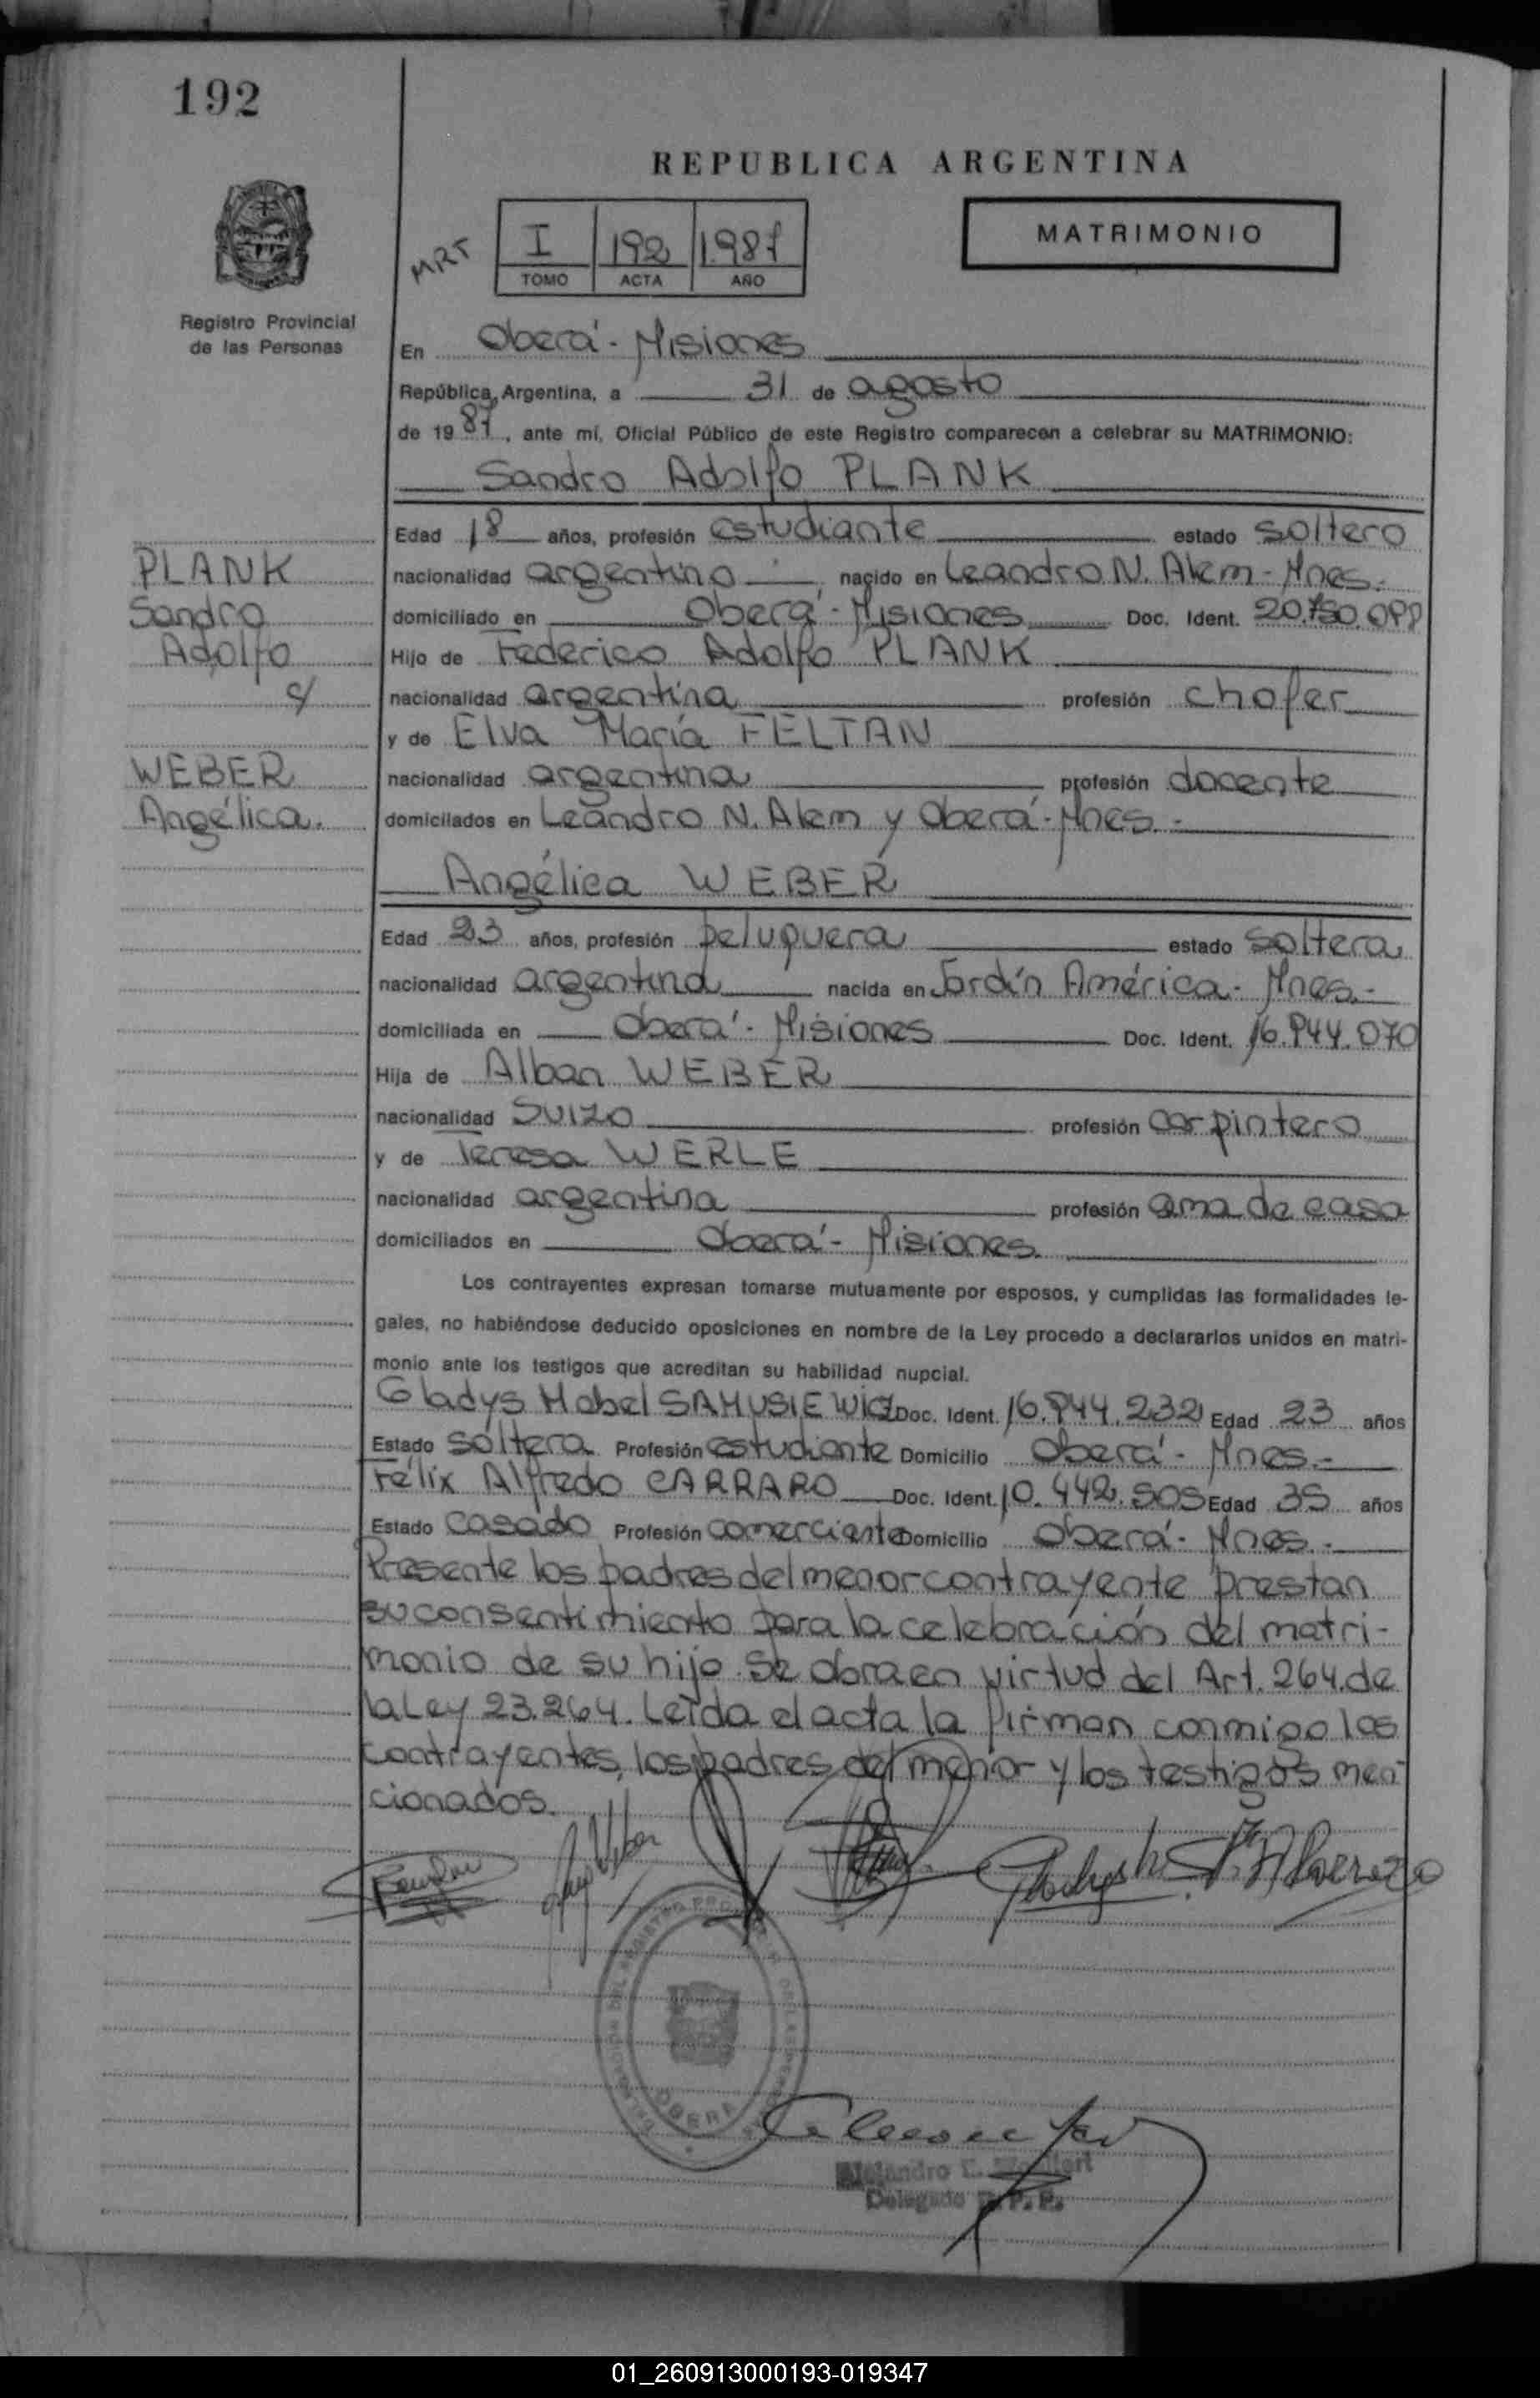 192
REPUBLICA ARGENTINA
MRT
I 192 1987
TOMO ACTA AÑO
MATRIMONIO
Registro Provincial
de las Personas
En Oberá - Misiones
República Argentina, a 31 de agosto
de 1987, ante mí, Oficial Público de este Registro comparecen a celebrar su MATRIMONIO:
Sandro Adolfo PLANK
Edad 18 años, profesión estudiante estado soltero
nacionalidad argentino nacido en Leandro N. Alem - Mnes.
domiciliado en Oberá - Misiones Doc. Ident.
Hijo de Federico Adolfo PLANK
nacionalidad argentina profesión chofer
y de Elva María FELTAN
nacionalidad argentina profesión docente
domiciliados en Leandro N. Alem y Oberá - Mnes. -
PLANK
Sandro
Adolfo
c/
WEBER
Angélica.
Angélica WEBER
Edad 23 años, profesión peluquera estado soltera
nacionalidad argentina nacida en Jardín América - Mnes. -
domiciliada en Oberá - Misiones Doc. Ident. 16.944.070
Hija de Alban WEBER
nacionalidad suizo profesión carpintero
y de Teresa WERLE
nacionalidad argentina profesión ama de casa
domiciliados en Oberá - Misiones.
Los contrayentes expresan tomarse mutuamente por esposos, y cumplidas las formalidades le-
gales, no habiéndose deducido oposiciones en nombre de la Ley procedo a declararlos unidos en matri-
monio ante los testigos que acreditan su habilidad nupcial.
Gladys Mabel Doc. Ident. 16.944.232 Edad 23 años
Estado soltera Profesión estudiante Domicilio Oberá - Mnes. -
Félix Alfredo CARRARO Doc. Ident. 10.442.505 Edad 35 años
Estado casado Profesión comerciante Domicilio Oberá - Mnes. -
Presente los padres del menor contrayente prestan
su consentimiento para la celebración del matri-
monio de su hijo. Se obra en virtud del Art. 264. de
la Ley 23.264. Leída el acta la firman conmigo los
contrayentes, los padres del menor y los testigos men-
cionados.
OBERA
Alejandro
Delegado R. P. P.
01_260913000193-019347